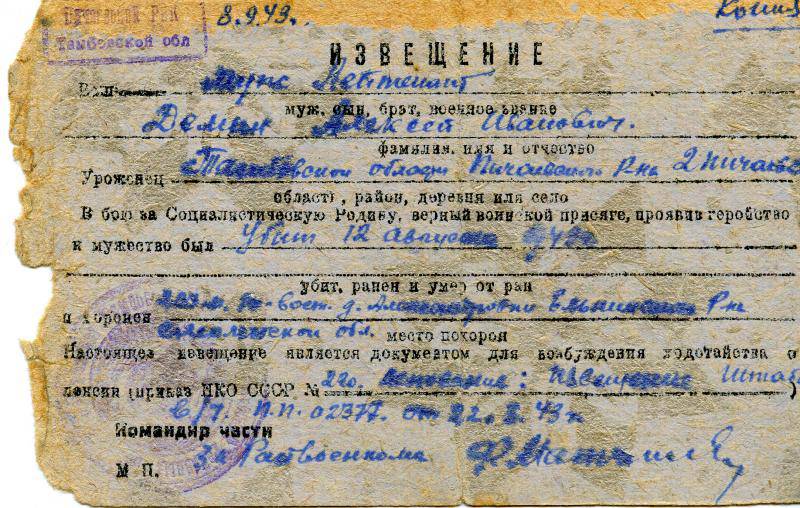 РВК
Тамбовской обл
8.9.43.
ИЗВЕЩЕНИЕ
Ваш муж Лейтенант
муж, сын, брат, военное звание
Демин Алексей Иванович.
фамилия, имя и отчество
Уроженец Тамбовской области Пичаевского Р-на 2 Пичаево
область, район, деревня или село
В бою за Социалистическую Родину, верный воинской присяге, проявив геройство
и мужество был Убит 12 августа 1943г
убит, ранен и умер от ран
и похоронен Ельнинского Р-на
Смоленской обл. место похорон
Настоящее извещение является документом для возбуждения ходотайства о
пенсии (приказ НКО СССР № 220. основание: извещение Штаб
в/ч. П.П. 02377. от 22. 43г
Командир части
За Райвоенкома
М П.